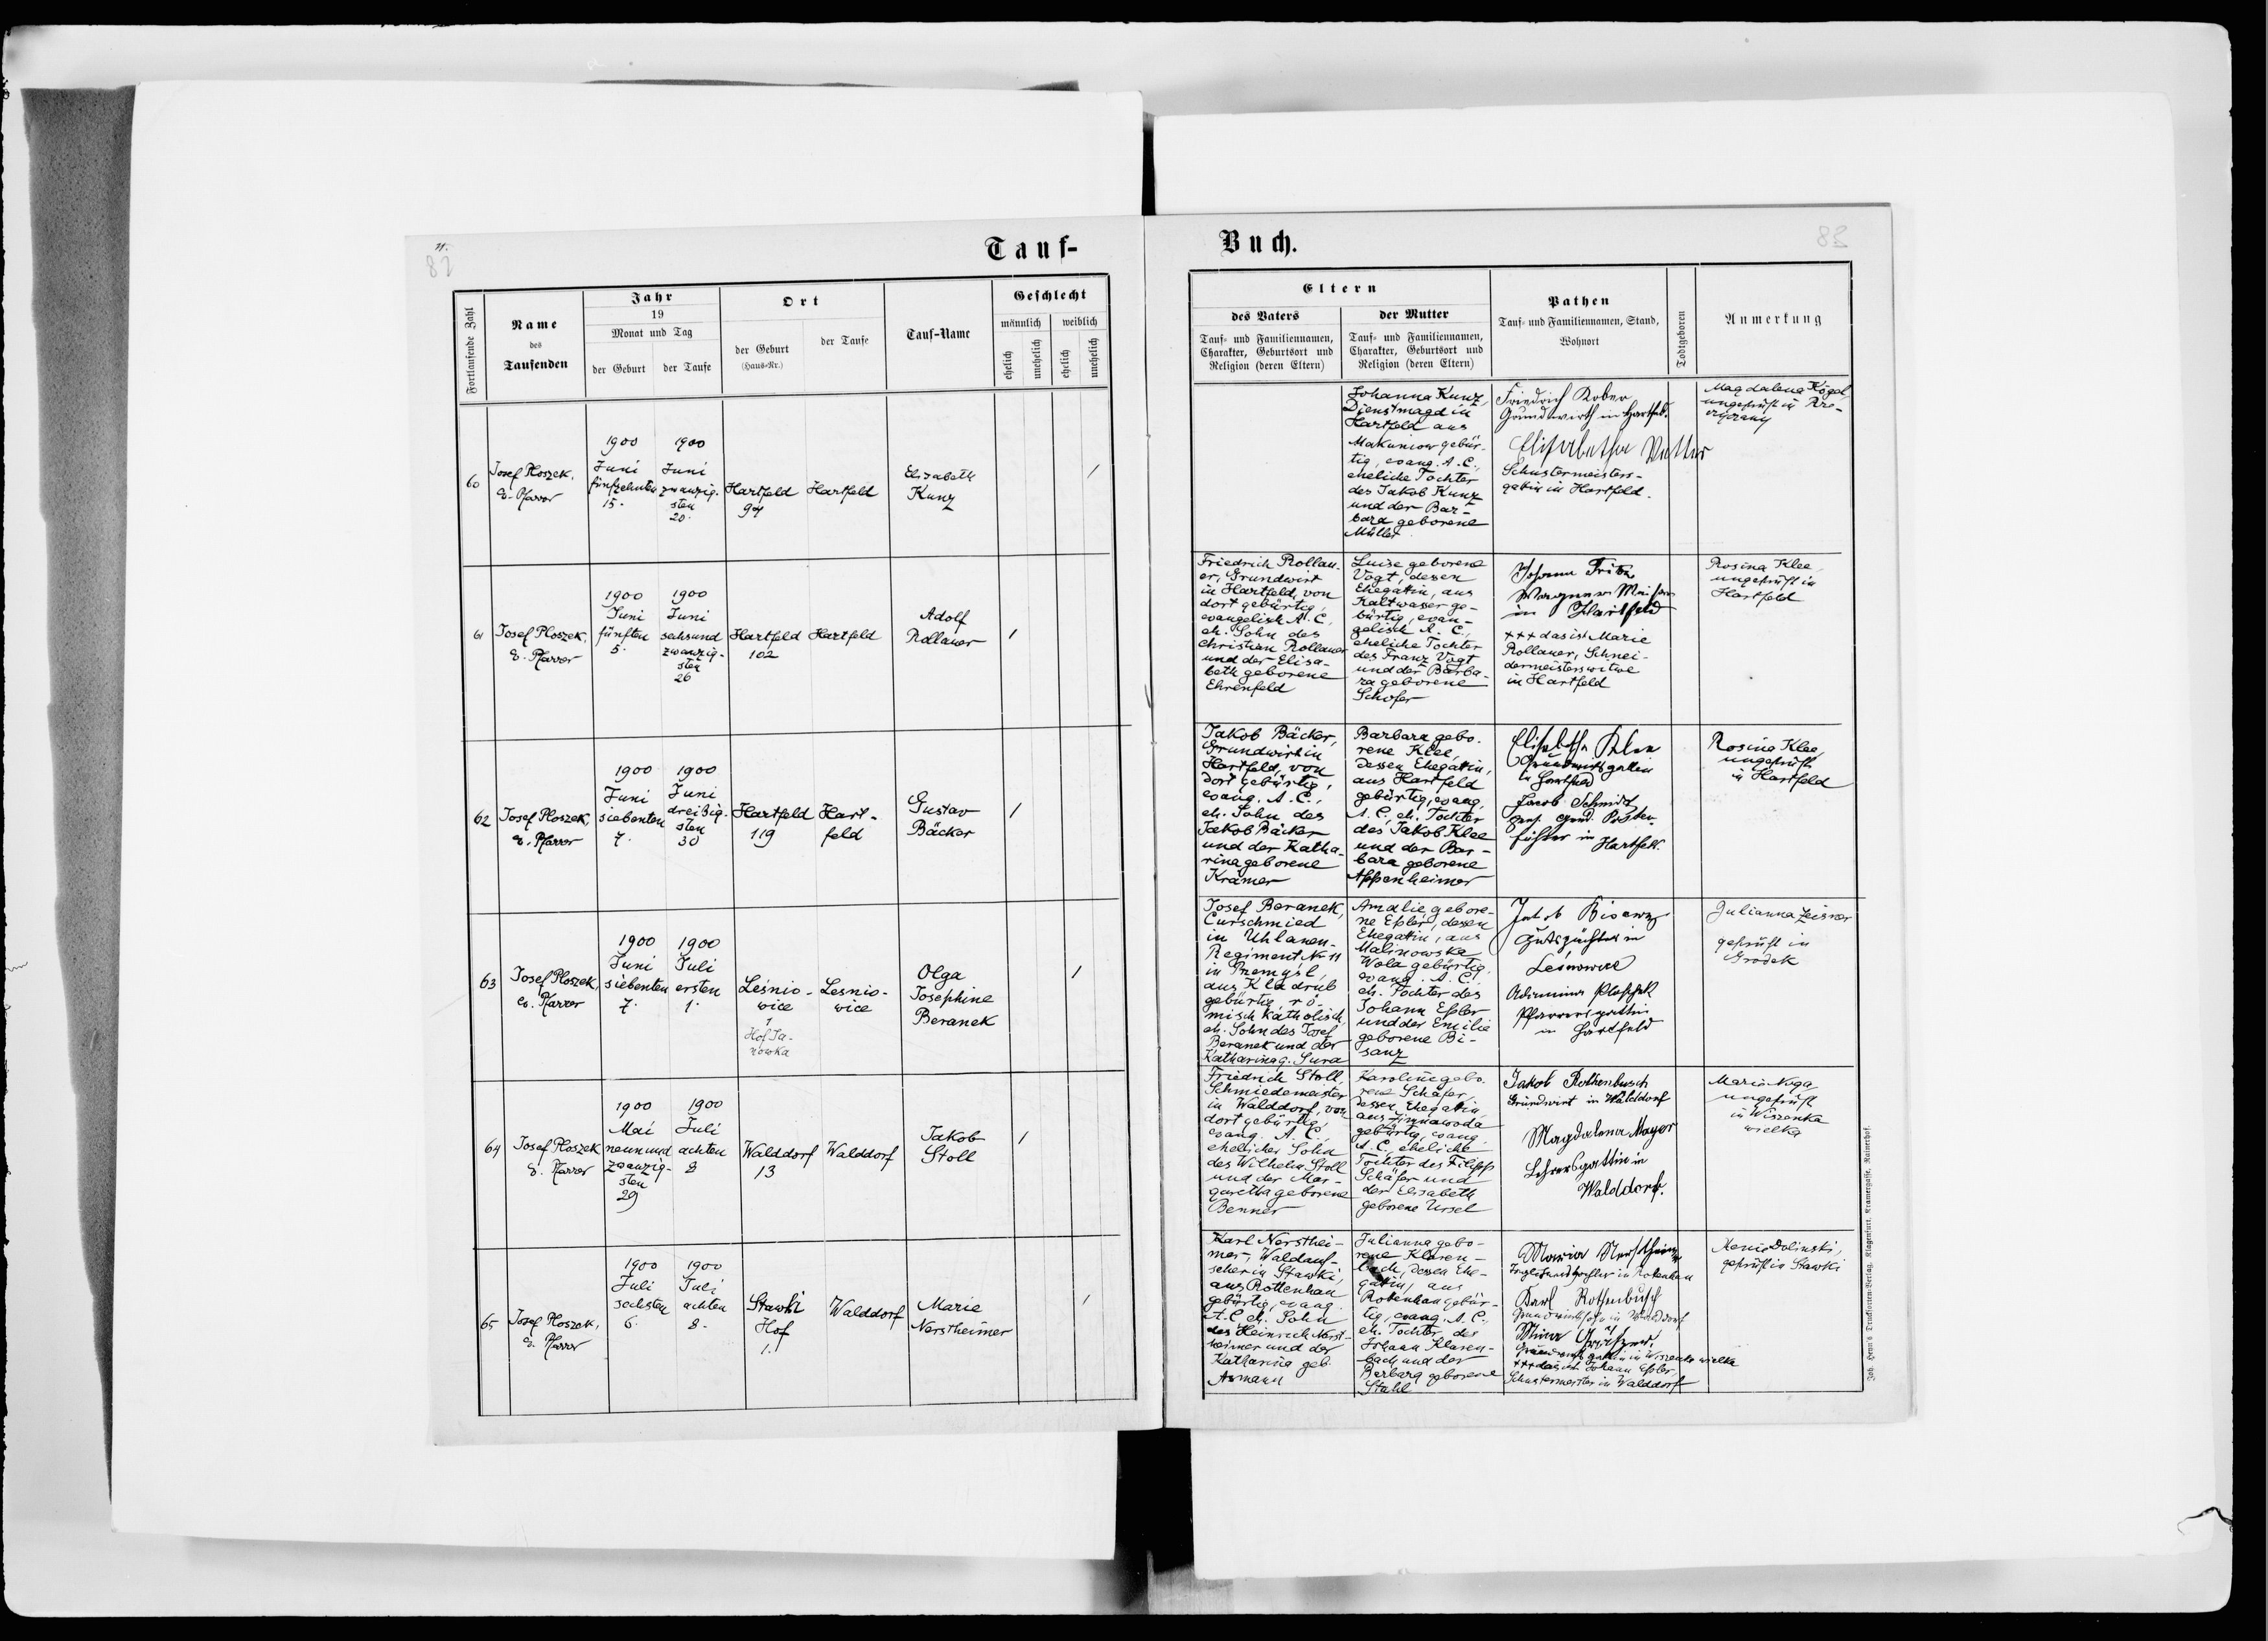 82
Tauf-
Fortlaufende Zahl
Name
des
Taufenden
Jahr
19
Monat und Tag
der Geburt
der Taufe
Ort
der Geburt
(Haus-Nr.)
der Taufe
Tauf-Name
Geschlecht
männlich
weiblich
ehelich
unehelich
ehelich
unehelich
60
Josef Ploszek,
e. Pfarrer
1900
Juni
fünfzehnten
15.
1900
Juni
zwanzig-
sten
20.
Hartfeld
94
Hartfeld
Elisabeth
Kunz
/
61
Josef Ploszek,
e. Pfarrer
1900
Juni
fünften
5.
1900
Juni
sechsund
zwanzig-
sten
26
Hartfeld
102
Hartfeld
Adolf
Rollauer
/
62
Josef Ploszek,
e. Pfarrer
1900
Juni
siebenten
7.
1900
Juni
dreißig-
sten
30
Hartfeld
119
Hart-
feld
Gustav
Bäcker
/
63
Josef Ploszek,
ev. Pfarrer
1900
Juni
siebenten
7.
1900
Juli
ersten
1.
Leśnio-
wice
1
Hof Ja-
nowka
Lesnio-
wice
Olga
Josephine
Beranek
/
64
Josef Ploszek
e. Pfarrer
1900
Mai
neunund
zwanzig-
sten
29
1900
Juli
achten
8
Walddorf
13
Walddorf
Jakob
Stoll
/
65
Josef Ploszek,
e. Pfarrer
1900
Juli
sechsten
6.
1900
Juli
achten
8.
Stawki
Hof
1.
Walddorf
Marie
Nerstheimer
/
Buch.
83
Eltern
des Vaters
Tauf- und Familiennamen,
Charakter, Geburtsort und
Religion (deren Eltern)
der Mutter
Tauf- und Familiennamen,
Charakter, Geburtsort und
Religion (deren Eltern)
Pathen
Tauf- und Familiennamen, Stand,
Wohnort
Todtgeboren
Anmerkung
Johanna Kunz,
Dienstmagd in
Hartfeld aus
Makuniow gebür-
tig, evang. A. C.,
eheliche Tochter
des Jakob Kunz
und der Bar-
bara geborene
Müller
Friedrich Kober
Grundwirth in Hartfeld.
Elisabetha Vetter
Schustermeisters-
gattin in Hartfeld.
Magdalena Kögel,
ungeprüft in
Friedrich Rollau-
er, Grundwirt
in Hartfeld, von
dort gebürtig,
evangelisch A. C.,
eh. Sohn des
Christian Rollauer
und der Elisa-
beth geborene
Ehrenfeld
Luise geborene
Vogt, dessen
Ehegattin, aus
Kaltwasser ge-
bürtig, evan-
gelisch A. C.,
eheliche Tochter
des Franz Vogt
und der Barba-
ra geborene
Schofer
Johann Fritz
Wagner Meister
in Hartfeld
+++ das ist Marie
Rollauer, Schnei-
dermeisterswitwe
in Hartfeld
Rosina Klee,
ungeprüft in
Hartfeld
Jakob Bäcker,
Grundwirt in
Hartfeld, von
dort gebürtig,
evang. A. C.,
eh. Sohn des
Jakob Bäcker
und der Katha-
rina geborene
Krämer
Barbara gebo-
rene Klee,
dessen Ehegattin,
aus Hartfeld
gebürtig, evang.
A. C. eh. Tochter
des Jakob Klee
und der Bar-
bara geborene
Appenheimer
Elisabetha Klee
Grundwirtsgattin
in Hartfeld
Jacob Schmidt
Posten-
führer in Hartfeld.
Rosina Klee,
ungeprüft
in Hartfeld
Josef Beranek,
Curschmied
in Uhlanen-
Regiment No 11
in Przemyśl,
aus Kladrub
gebürtig, rö-
misch katholisch,
eh. Sohn des Josef
Beranek und der
Katharina g. Sura
Amalie, gebore-
ne Eßler, dessen
Ehegattin, aus
Malinowska
Wola gebürtig,
evang. A. C.,
eh. Tochter des
Johann Eßler
und der Emilie
geborene Bi-
sanz
Jakob Bisanz
Gutspächter in
Leśnowice
Ploszek
Pfarrersgattin
in Hartfeld
Julianna Zeisner
geprüft in
Gródek
Friedrich Stoll,
Schmiedemeister
in Walddorf, von
dort gebürtig,
evang. A. C.,
ehelicher Sohn
des Wilhelm Stoll
und der Mar-
garetha geborene
Benner
Karoline gebo-
rene Schäfer,
dessen Ehegattin,
aus Zimnawoda
gebürtig, evang.
A. C. eheliche
Tochter des Filipp
Schäfer und
der Elisabeth
geborene Ursel
Jakob Rothenbusch
Grundwirt in Walddorf
Magdalena Mayer
Lehrersgattin in
Walddorf.
Maria Noga,
ungeprüft
in Wiszenka
wielka
Karl Nersthei-
mer, Waldauf-
seher in Stawki,
aus Rottenhan
gebürtig, evang.
A. C. eh. Sohn
des Heinrich Nerst-
heimer und der
Katharina geb.
Armann
Julianna gebo-
rene Klaren-
bach, dessen Ehe-
gattin, aus
Rottenhan gebür-
tig, evang. A. C.,
eh. Tochter des
Johann Klaren-
bach und der
Barbara geborene
Stahl
Maria Nerstheimer
in Rotenhan
Karl Rothenbusch
Grundwirthssohn in Walddorf
in Wiszenka wielka
+++ das ist Johann Eßler
Schustermeister in Walddorf
Dolinski,
geprüft in Stawki
Joh. Heyn's Drucksorten-Verlag, Klagenfurt, Kramergasse, Rainerhof.